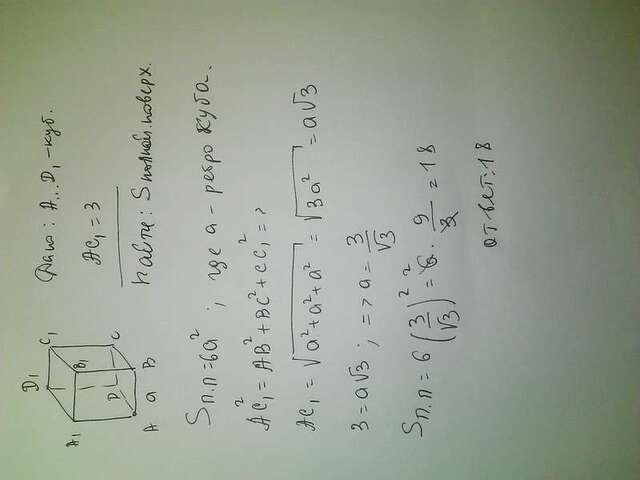 Дано: A...D₁ – куб.
AC₁ = 3
Найти: Sполной.поверх.
D₁ C₁
A₁ B₁
D C
A a B
Sп.п = 6a² ; где a – ребро куба.
AC₁² = AB² + BC² + CC₁² =>
AC₁ = √(a² + a² + a²) = √(3a²) = a√3
3 = a√3 ; => a = 3/√3
Sп.п = 6(3/√3)² = 6 · 9/3 = 18
ответ: 18